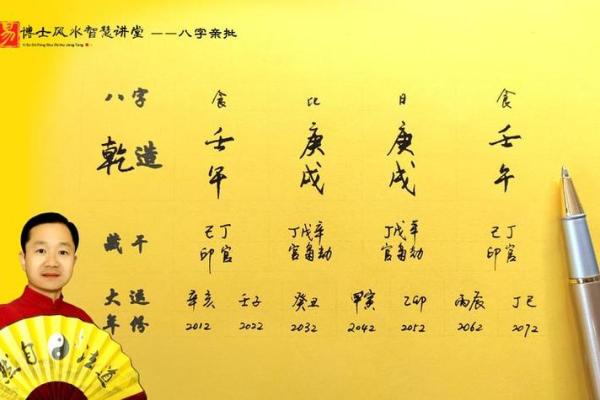 易 博士风水智慧讲堂 ——八字亲批
Yi Bo Shi Feng Shui Zhi Hui Jiang Tang
八字 食 比 日 食
乾造 壬午 庚戌 庚戌 壬午
藏干 己丁 丁戊辛 丁戊辛 己丁
印官 官枭劫 官枭劫 印官
大運 辛亥 壬子 癸丑 甲寅 乙卯 丙辰 丁巳
年份 2012 2022 2032 2042 2052 2062 2072
然自 法道